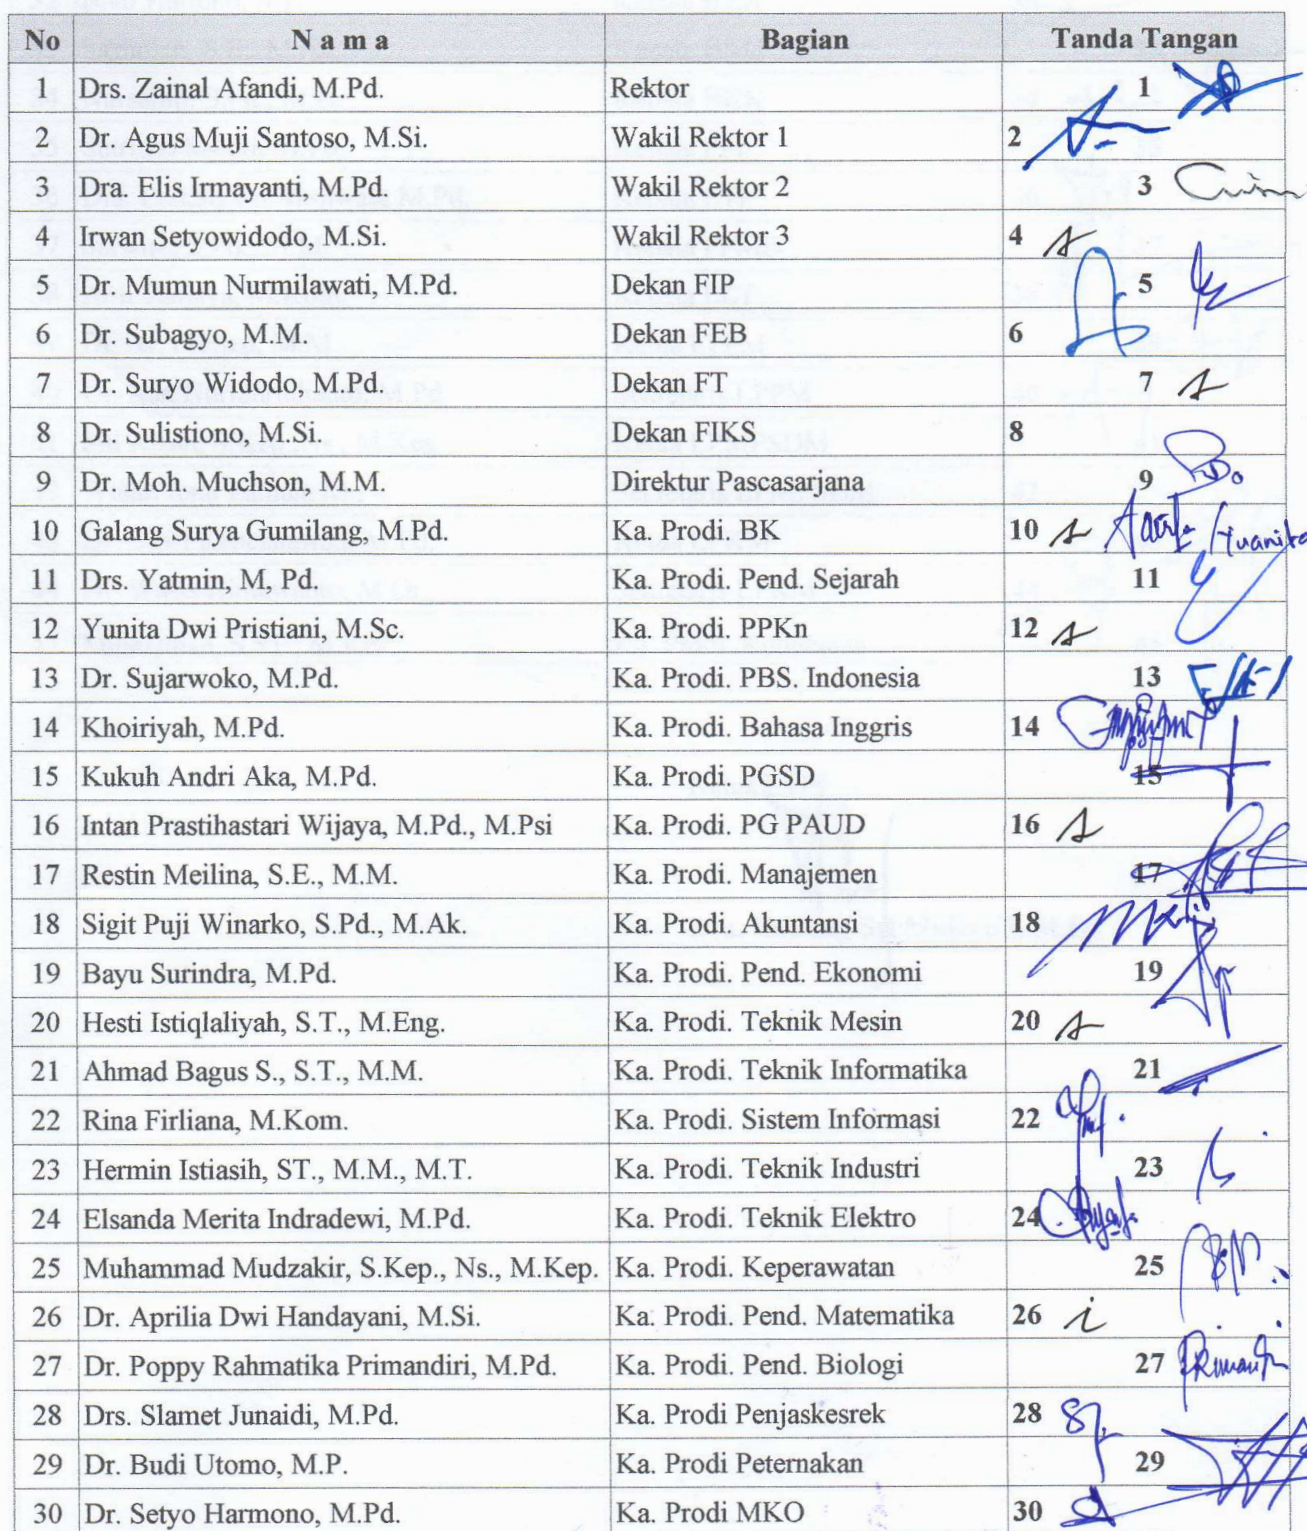 No N a m a Bagian Tanda Tangan
1 Drs. Zainal Afandi, M.Pd. Rektor 1
2 Dr. Agus Muji Santoso, M.Si. Wakil Rektor 1 2
3 Dra. Elis Irmayanti, M.Pd. Wakil Rektor 2 3
4 Irwan Setyowidodo, M.Si. Wakil Rektor 3 4
5 Dr. Mumun Nurmilawati, M.Pd. Dekan FIP 5
6 Dr. Subagyo, M.M. Dekan FEB 6
7 Dr. Suryo Widodo, M.Pd. Dekan FT 7
8 Dr. Sulistiono, M.Si. Dekan FIKS 8
9 Dr. Moh. Muchson, M.M. Direktur Pascasarjana 9
10 Galang Surya Gumilang, M.Pd. Ka. Prodi. BK 10
11 Drs. Yatmin, M, Pd. Ka. Prodi. Pend. Sejarah 11
12 Yunita Dwi Pristiani, M.Sc. Ka. Prodi. PPKn 12
13 Dr. Sujarwoko, M.Pd. Ka. Prodi. PBS. Indonesia 13
14 Khoiriyah, M.Pd. Ka. Prodi. Bahasa Inggris 14
15 Kukuh Andri Aka, M.Pd. Ka. Prodi. PGSD 15
16 Intan Prastihastari Wijaya, M.Pd., M.Psi Ka. Prodi. PG PAUD 16
17 Restin Meilina, S.E., M.M. Ka. Prodi. Manajemen 17
18 Sigit Puji Winarko, S.Pd., M.Ak. Ka. Prodi. Akuntansi 18
19 Bayu Surindra, M.Pd. Ka. Prodi. Pend. Ekonomi 19
20 Hesti Istiqlaliyah, S.T., M.Eng. Ka. Prodi. Teknik Mesin 20
21 Ahmad Bagus S., S.T., M.M. Ka. Prodi. Teknik Informatika 21
22 Rina Firliana, M.Kom. Ka. Prodi. Sistem Informasi 22
23 Hermin Istiasih, ST., M.M., M.T. Ka. Prodi. Teknik Industri 23
24 Elsanda Merita Indradewi, M.Pd. Ka. Prodi. Teknik Elektro 24
25 Muhammad Mudzakir, S.Kep., Ns., M.Kep. Ka. Prodi. Keperawatan 25
26 Dr. Aprilia Dwi Handayani, M.Si. Ka. Prodi. Pend. Matematika 26 i
27 Dr. Poppy Rahmatika Primandiri, M.Pd. Ka. Prodi. Pend. Biologi 27
28 Drs. Slamet Junaidi, M.Pd. Ka. Prodi Penjaskesrek 28
29 Dr. Budi Utomo, M.P. Ka. Prodi Peternakan 29
30 Dr. Setyo Harmono, M.Pd. Ka. Prodi MKO 30